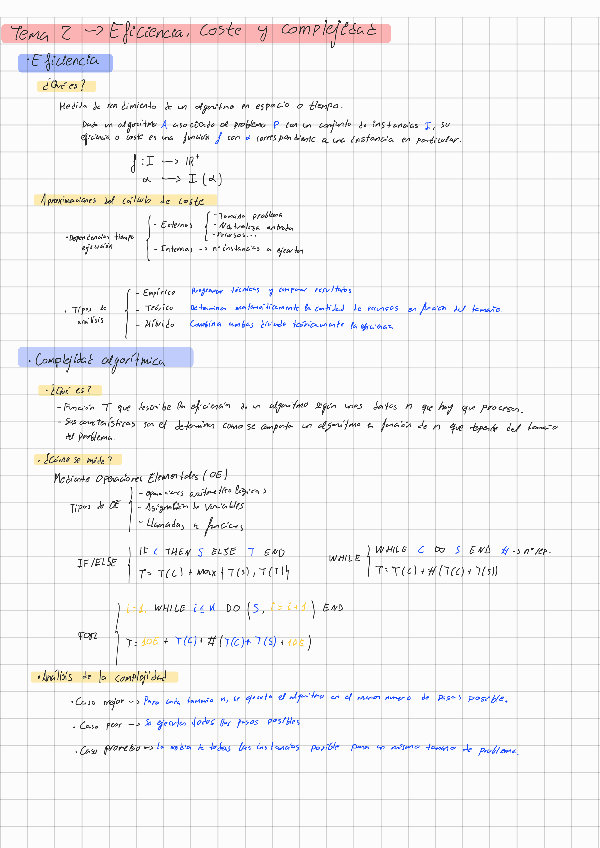 Tema 2 -> Eficiencia, coste y complejidad
· Eficiencia
¿Qué es?
Medida de rendimiento de un algoritmo en espacio o tiempo.
Dado un algoritmo A asociado al problema P con un conjunto de instancias I, su
eficiencia o coste es una función f con α correspondiente a una instancia en particular.
f : I -> IR⁺
α -> I (α)
Aproximaciones del cálculo de coste
· Dependencias tiempo
ejecución
- Externos
- Tamaño problema
- Naturaleza entrada
- Recursos...
- Internas -> nº instancias a ejecutar
· Tipos de
análisis
- Empírico Programar técnicas y comparar resultados
- Teórico Determina matemáticamente la cantidad de recursos en función del tamaño
- Híbrido Combina ambas teóricamente la eficiencia
· Complejidad algorítmica
· ¿Qué es?
- Función T que describe la eficiencia de un algoritmo según unos datos n que hay que procesar.
- Sus características son el determinar como se comporta un algoritmo en función de n que depende del tamaño
del problema.
· ¿Cómo se mide?
Mediante Operaciones Elementales (OE)
Tipos de OE
- operaciones aritmético lógicas
- Asignación de variables
- Llamadas a funciones
IF/ELSE
IF C THEN S ELSE T END
T = T(C) + MAX { T(S), T(T)}
WHILE
WHILE C DO S END # -> nº rep.
T = T(C) + #(T(C) + T(S))
FOR
i=1, WHILE i≤N DO (S, i=i+1) END
T = 1OE + T(C) + #(T(C) + T(S) + 1OE)
· Análisis de la complejidad
· Caso mejor -> Para cada tamaño n, se ejecuta el algoritmo en el menor numero de pasos posible.
· Caso peor -> Se ejecutan todos los pasos posibles
· Caso promedio -> la media de todas las instancias posible para un mismo tamaño de problema.